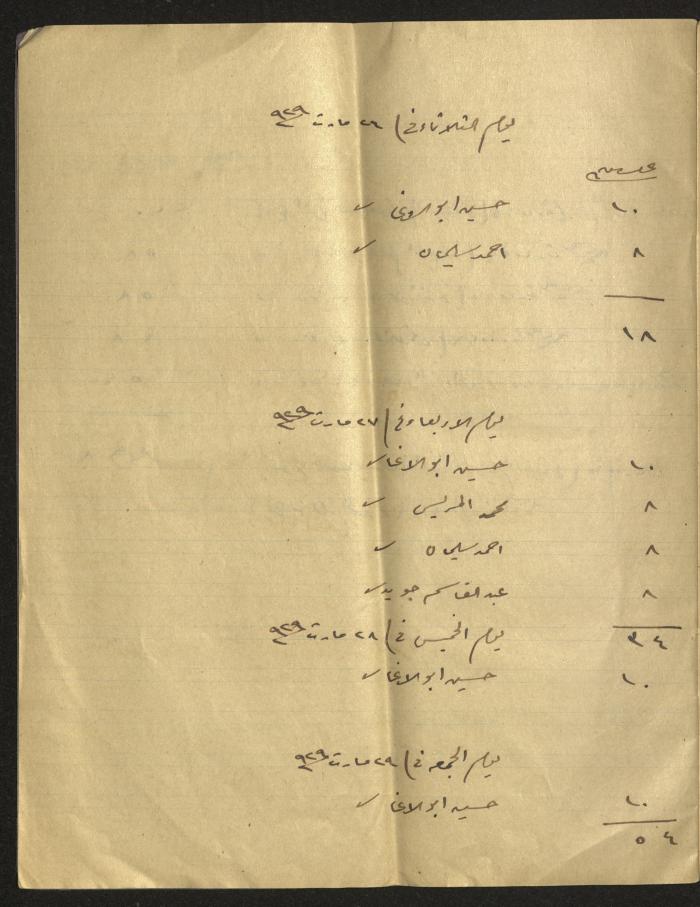 يوم الثلاثاء في ٢٦ مارت ٩٢٩
١٠ حسين ابو الاغا
٨ احمد سليمان
١٨
يوم الاربعاء في ٢٧ مارت ٩٢٩
١٠ حسين ابو الاغا
٨ محمد الريس
٨ احمد سليمان
٨ عبد القاسم جويد
٣٤
يوم الخميس في ٢٨ مارت ٩٢٩
١٠ حسين ابو الاغا
يوم الجمعه في ٢٩ مارت ٩٢٩
١٠ حسين ابو الاغا
٥٤